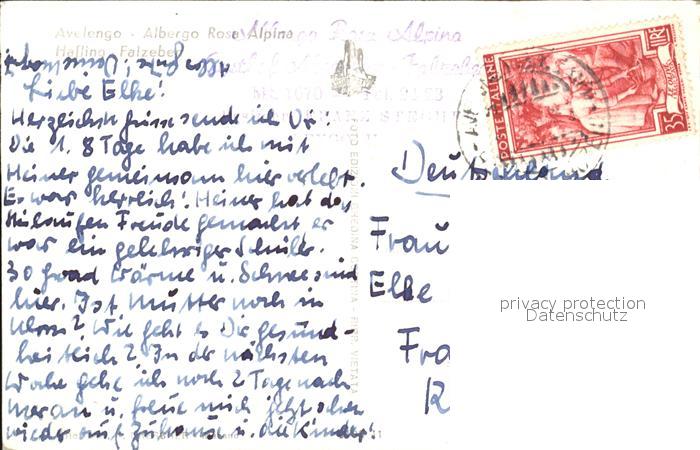 Avelengo - Albergo Rosa Alpina
Hafling Falzeben
Albergo Rosa Alpina
Liebe Elke!
Herzlichste Grüsse sende ich Dir
Die 1. 8 Tage habe ich mit
Heiner gemeinsam hier verlebt.
Es war herrlich! Heiner hat das
Skilaufen Freude gemacht er
war ein gelehriger Schüler.
30 Grad Wärme u. Schnee sind
hier. Ist Mutter noch in
? Wie geht es Dir gesund-
heitlich? In der nächsten
Woche gehe ich noch 2 Tage nach
Meran u. freue mich jetzt schon
wieder auf Zuhause u. die Kinder!
POSTE ITALIANE
LIRE
35
Deutschland
Frau
Elke
Fra
privacy protection
Datenschutz